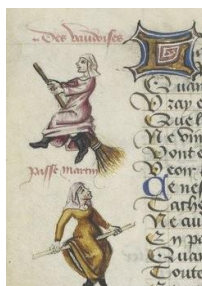 Des vaudoises
passe martin
Quan
Vray e
Quel
Ne vin
Dont e
Veom
Ce nes
Cathe
Ne au
En pa
Quan
Toute